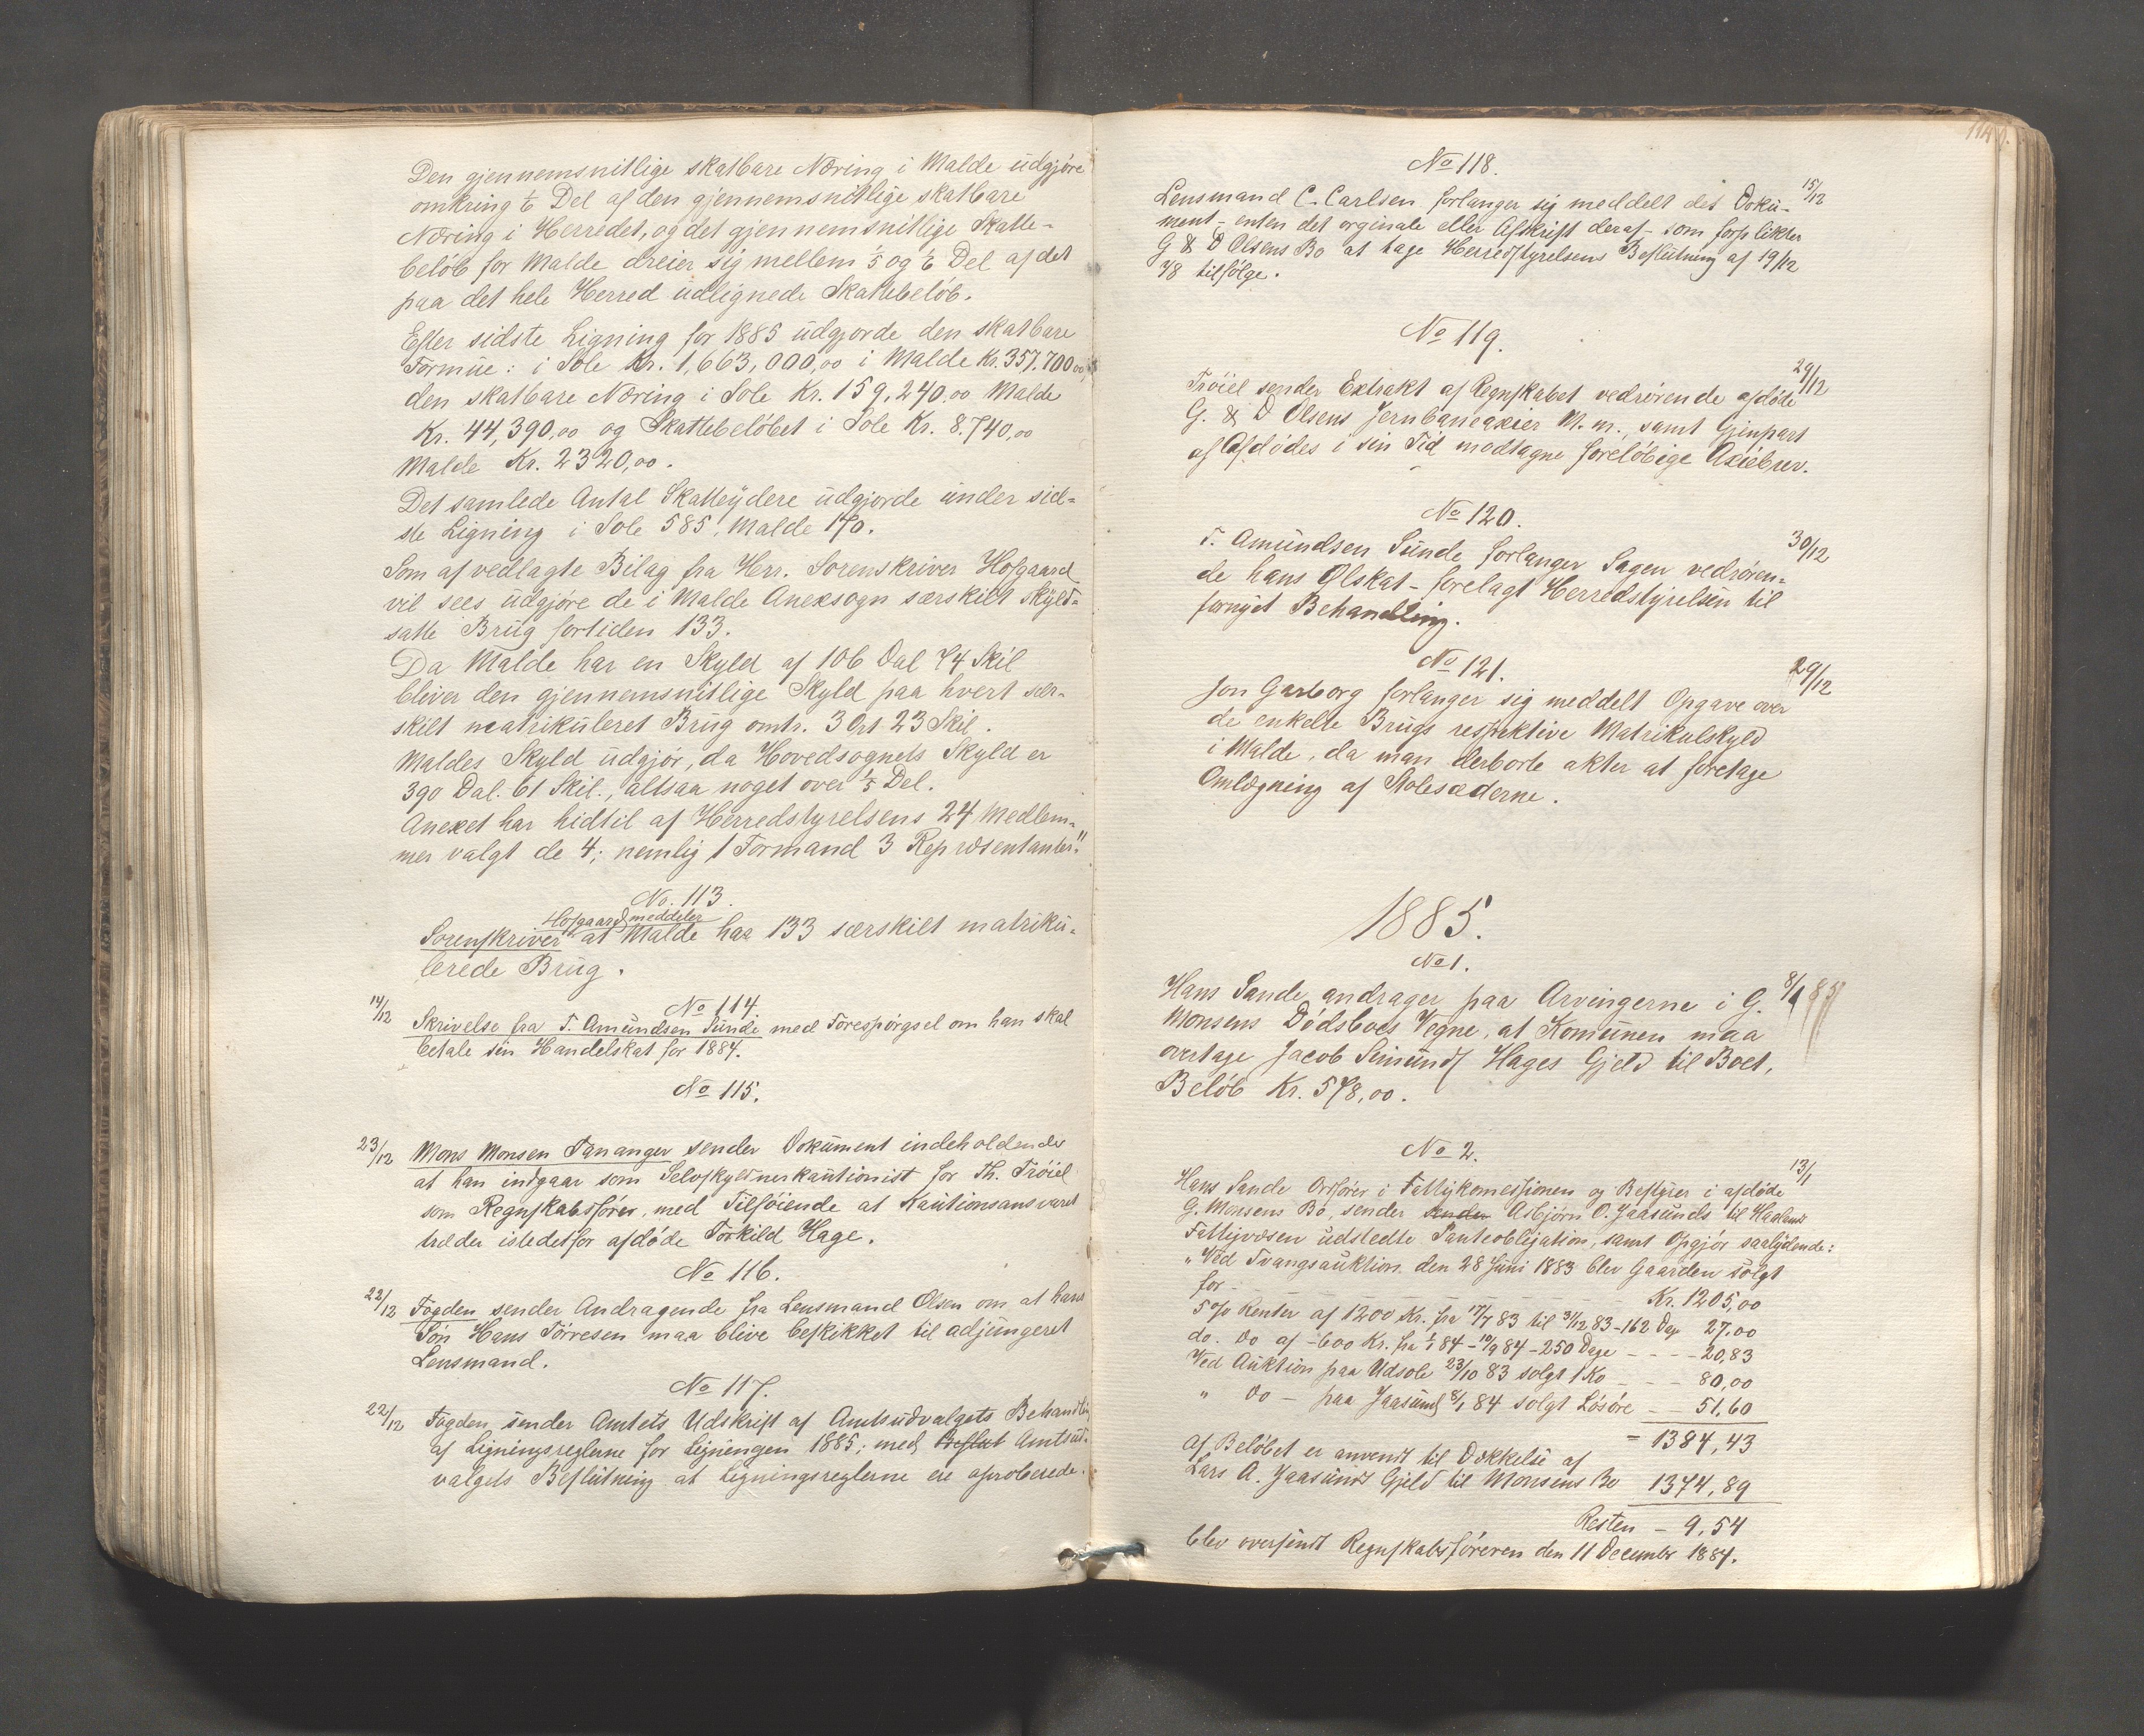 Den gjennemsnitlige skatbare Næring i Malde udgjøre
omkring 1/6 Del af den gjennemsnitlige skatbare
Næring i Herredet, og det gjennemsnitlige Skatte-
beløb for Malde dreier sig mellem 1/5 og 1/6 Del af det
paa det hele Herred udlignede Skattebeløb.
Efter sidste Ligning for 1885 udgjorde den skatbare
Formue: i Sole Kr. 1,663,000,00 i Malde Kr. 357.700,00,
den skatbare Næring i Sole Kr. 159,240,00 Malde
Kr. 44,390,00 og Skattebeløbet i Sole Kr. 8.740,00
Malde Kr. 2320,00.
Det samlede Antal Skatteydere udgjorde under sid-
ste Ligning i Sole 585, Malde 170.
Som af vedlagte Bilag fra Herr. Sorenskriver Hofgaard
vil sees udgjøre de i Malde Anexsogn særskilt skyld-
satte Brug fortiden 133.
Da Malde har en Skyld af 106 Dal 74 Skil
bliver den gjennemsnitlige Skyld paa hvert sær-
skilt matrikuleret Brug omtr. 3 Ort 23 Skil.
Maldes Skyld udgjør, da Hovedsognets Skyld er
390 Dal. 61 Skil., altsaa noget over 1/5 Del.
Anexet har hidtil af Herredstyrelsens 24 Medlem-
mer valgt de 4; nemlig 1 Formand 3 Repræsentanter."
No. 113.
Hofgaard meddeler
Sorenskriver at Malde har 133 særskilt matriku-
lerede Brug.
No 114.
14/12 Skrivelse fra T. Amundsen Sunde med Forespørgsel om han skal
betale sin Handelskat for 1884.
No 115.
23/12 Mons Monsen Tananger sender Dokument indeholdende
at han indgaar som Selvskyldnerkautionist for Th. Trøiel
som Regnskabsfører, med Tilføiende at Kautionsansvaret
træder istedetfor afdøde Torkild Hage.
No 116.
22/12 Fogden sender Andragende fra Lensmand Olsen om at hans
Søn Hans Tørresen maa blive beskikket til adjungeret
Lensmand.
No 117.
22/12 Fogden sender Amtets Udskrift af Amtsudvalgets Behandling
af Ligningsreglerne for Ligningen 1885; med Beslut Amtsud-
valgets Beslutning at Ligningsreglerne ere aproberede.
No 118.
Lensmand C. Carlsen forlanger sig meddelt det Doku- 15/12
ment - enten det orginale eller Afskrift deraf - som forplikter
G & D Olsens Bo at tage Herredstyrelsens Beslutning af 19/12
78 tilfølge.
No 119.
Trøiel sender Extrakt af Regnskabet vedrørende afdøde 29/12
G. & D Olsens Jernbaneaxier M. m., samt Gjenpart
af Afdødes i sin Tid modtagne foreløbige Axiebrev.
No 120.
T. Amundsen Sunde forlanger Sagen vedrøren- 30/12
de hans Ølskat - forelagt Herredstyrelsen til
fornyet Behandling.
No 121.
Jon Garborg forlanger sig meddelt Opgave over 29/12
de enkelte Brugs respektive Matrikulskyld
i Malde, da man derborte akter at foretage
Omlægning af Stolesæderne.
1885.
No 1.
Hans Sande andrager paa Arvingerne i G. 8/1 85
Monsens Dødsboes Vegne, at Komunen maa
overtage Jacob Simunds Hages Gjeld til Boet,
Beløb Kr. 578,00.
No 2.
Hans Sande Orfører i Fattigkomessionen og Bestyrer i afdøde 13/1
G. Monsens Bo, sender sender Asbjørn O. Jaasunds til Haalands
Fattigvæsen udstedte Panteobligation, samt Opgjør saalydende:
"Ved Tvangsauktion den 28 Juni 1883 blev Gaarden solgt
for - - - - - - - Kr. 1205,00
5 o/o Renter af 1200 Kr. fra 17/7 83 til 31/12 83 - 162 Dage 27,00
do. Do af - 600 Kr. fra 1/1 84 - 10/9 84 - 250 Dage - - - 20,83
Ved Auktion paa Udsole 23/10 83 solgt 1 Ko - - - 80,00
" Do - paa Jaasund 8/1 84 solgt Løsøre - - 51,60
= 1384,43
Af Beløbet er anvendt til Dækkelse af
Lars A. Jaasunds Gjeld til Monsens Bo 1374,89
Resten - 9,54
blev oversendt Regnskabsføreren den 11 December 1884.